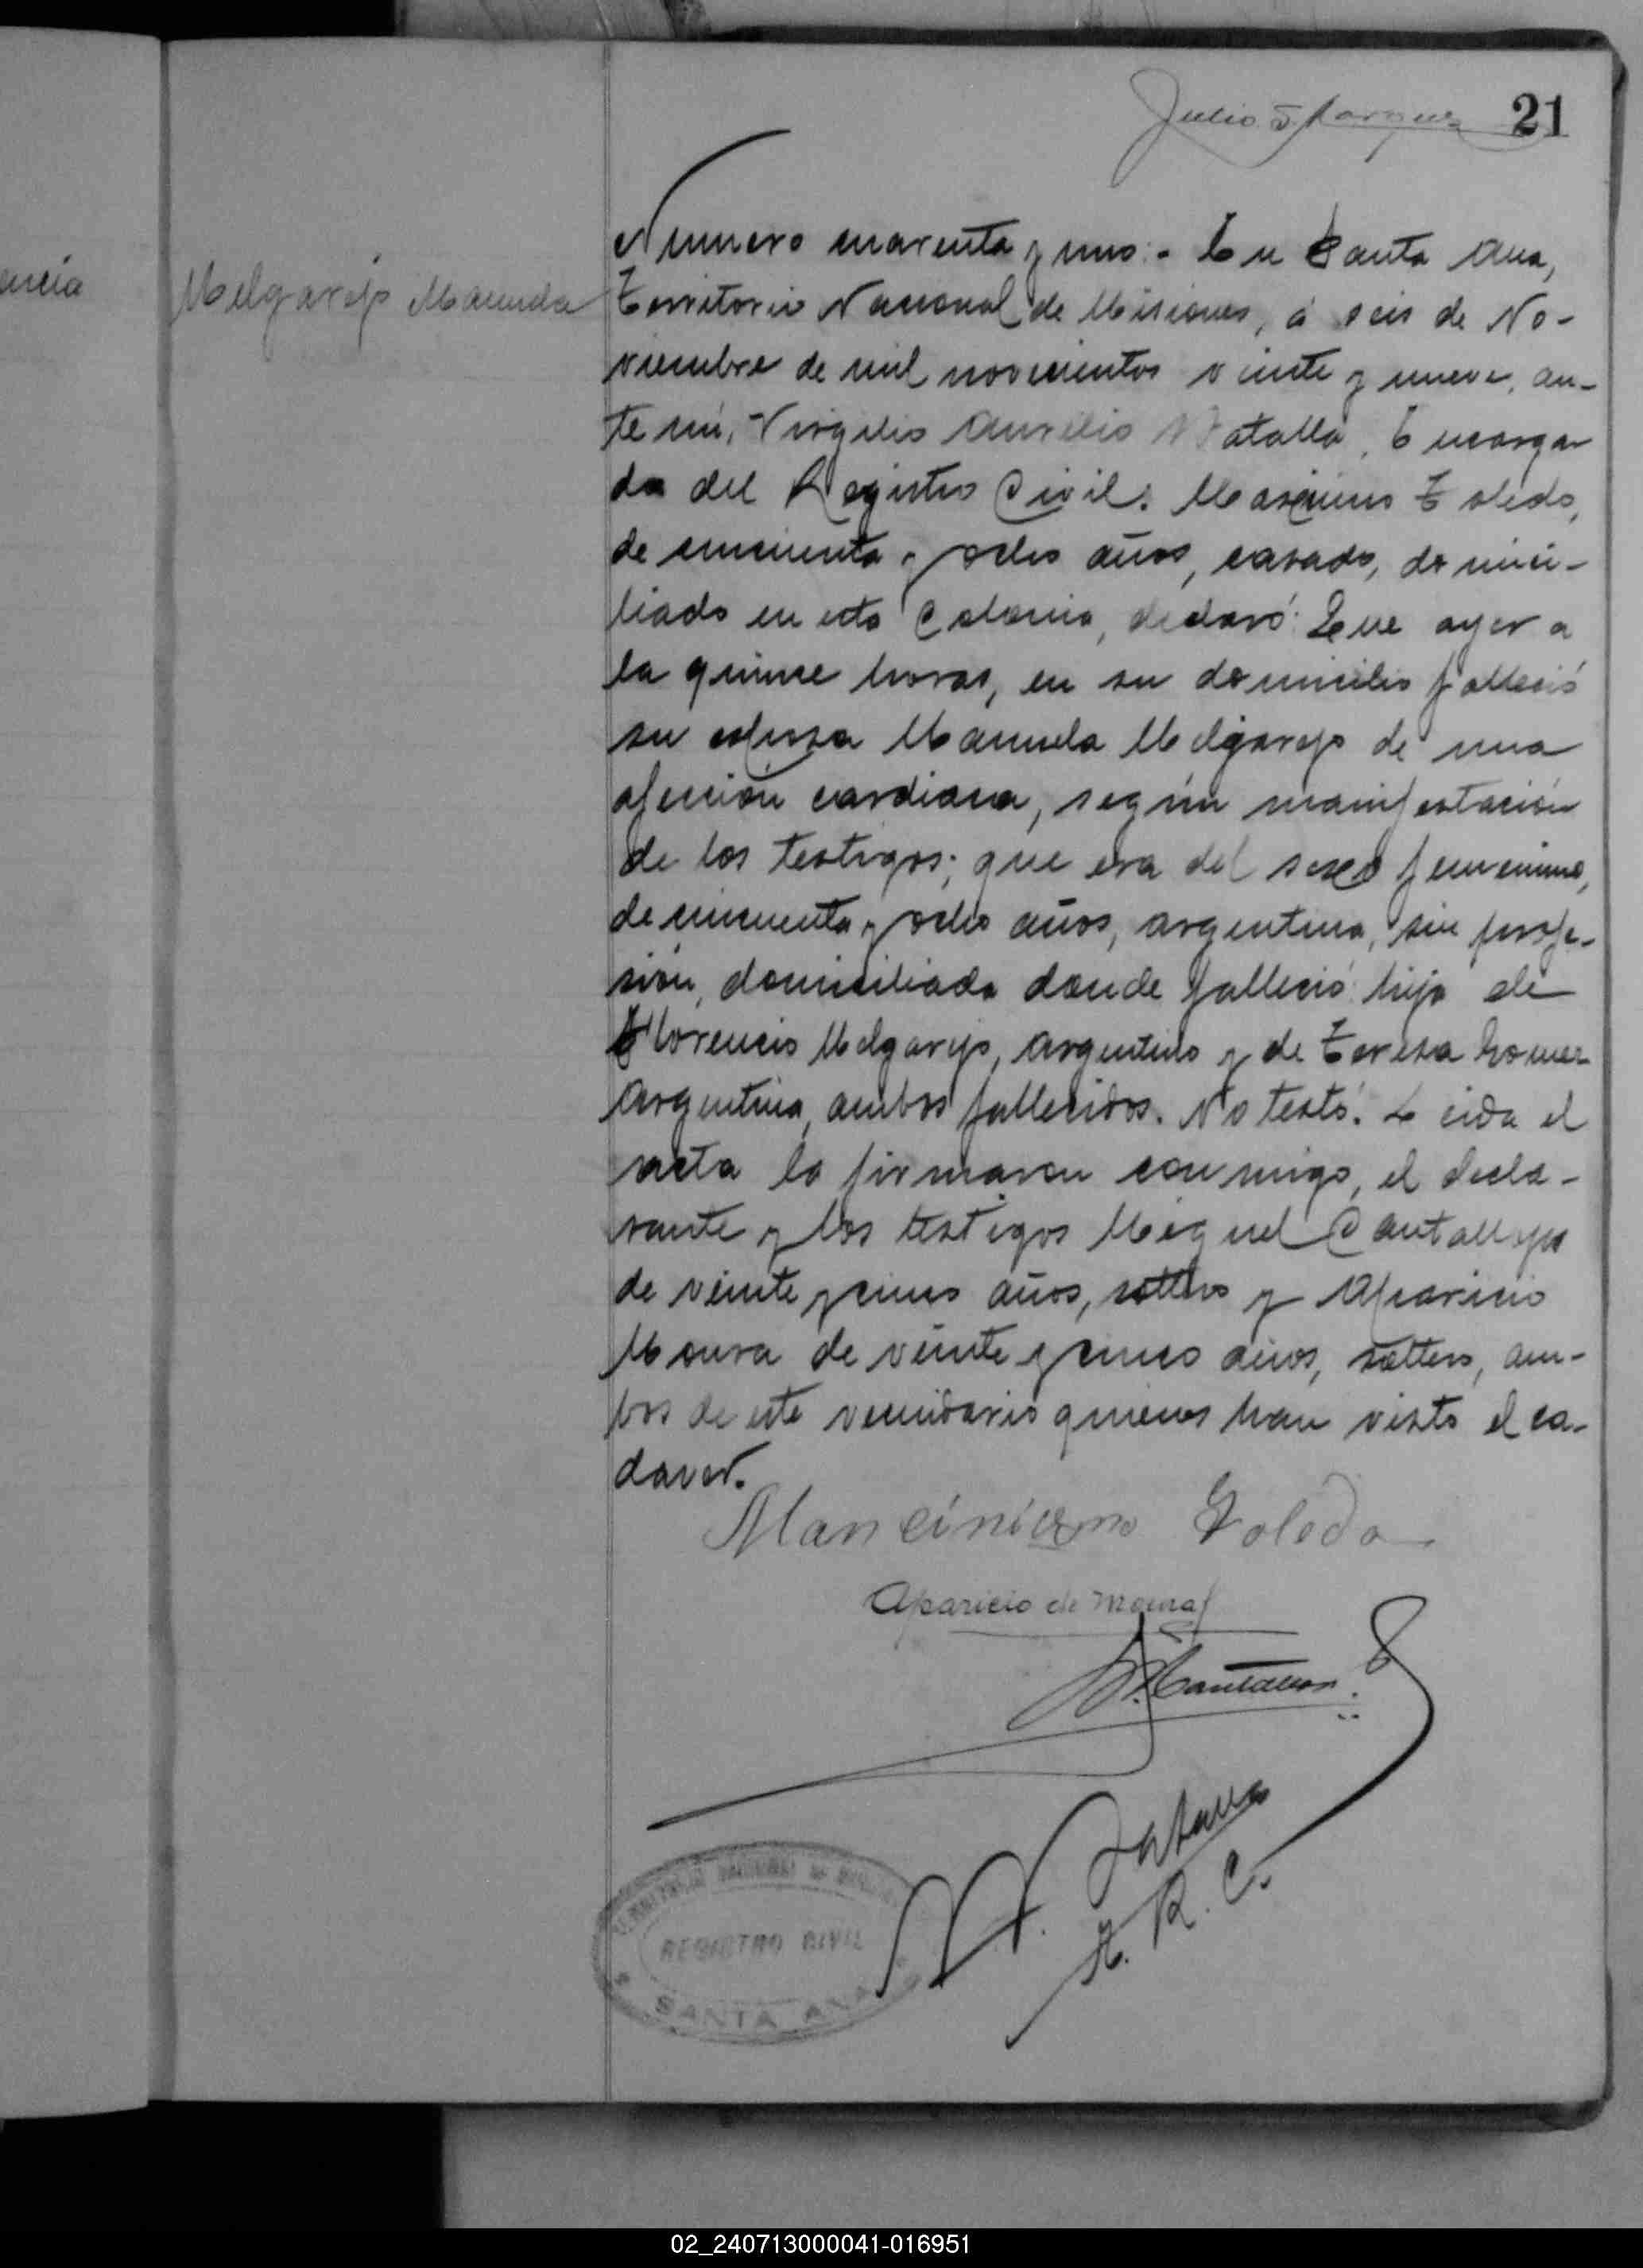 21
Numero cuarenta y uno:- En Santa Ana,
encia
Melgarejo Manuela
Territorio Nacional de Misiones, á seis de No-
viembre de mil novecientos veinte y nueve, an-
te mí, Virgilio Aurelio Batalla, Encarga
do del Registro Civil: Maximo Toledo,
de cincuenta y ocho años, casado, domici-
liado en esta Colonia, declaró: Que ayer a
la quince horas, en su domicilio falleció
su esposa Manuela Melgarejo de una
afección cardiaca, según manifestación
de los testigos; que era del sexo femenino,
de cincuenta y ocho años, argentina, sin profe-
sión, domiciliada donde falleció: hija de
Florencio Melgarejo, argentino y de Teresa Gomez
Argentina, ambos fallecidos. No testó. Leida el
acta la firmaron conmigo, el decla-
rante y los testigos Miguel Cantallops
de veinte y cinco años, soltero y Aparicio
Moura de veinte y cinco años, soltero, am-
bos de este vecindario quienes han visto el ca-
daver.
Toledo
Aparicio de Moura
V. Batalla
E. R. C.
TERRITORIO NACIONAL DE MISIONES
REGISTRO CIVIL
SANTA ANA
02_240713000041-016951